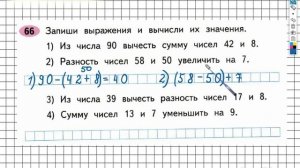 66 Запиши выражения и вычисли их значения.
1) Из числа 90 вычесть сумму чисел 42 и 8.
2) Разность чисел 58 и 50 увеличить на 7.
50
1) 90-(42+8)=40 2) (58-50)+7
3) Из числа 39 вычесть разность чисел 17 и 8.
4) Сумму чисел 13 и 7 уменьшить на 9.